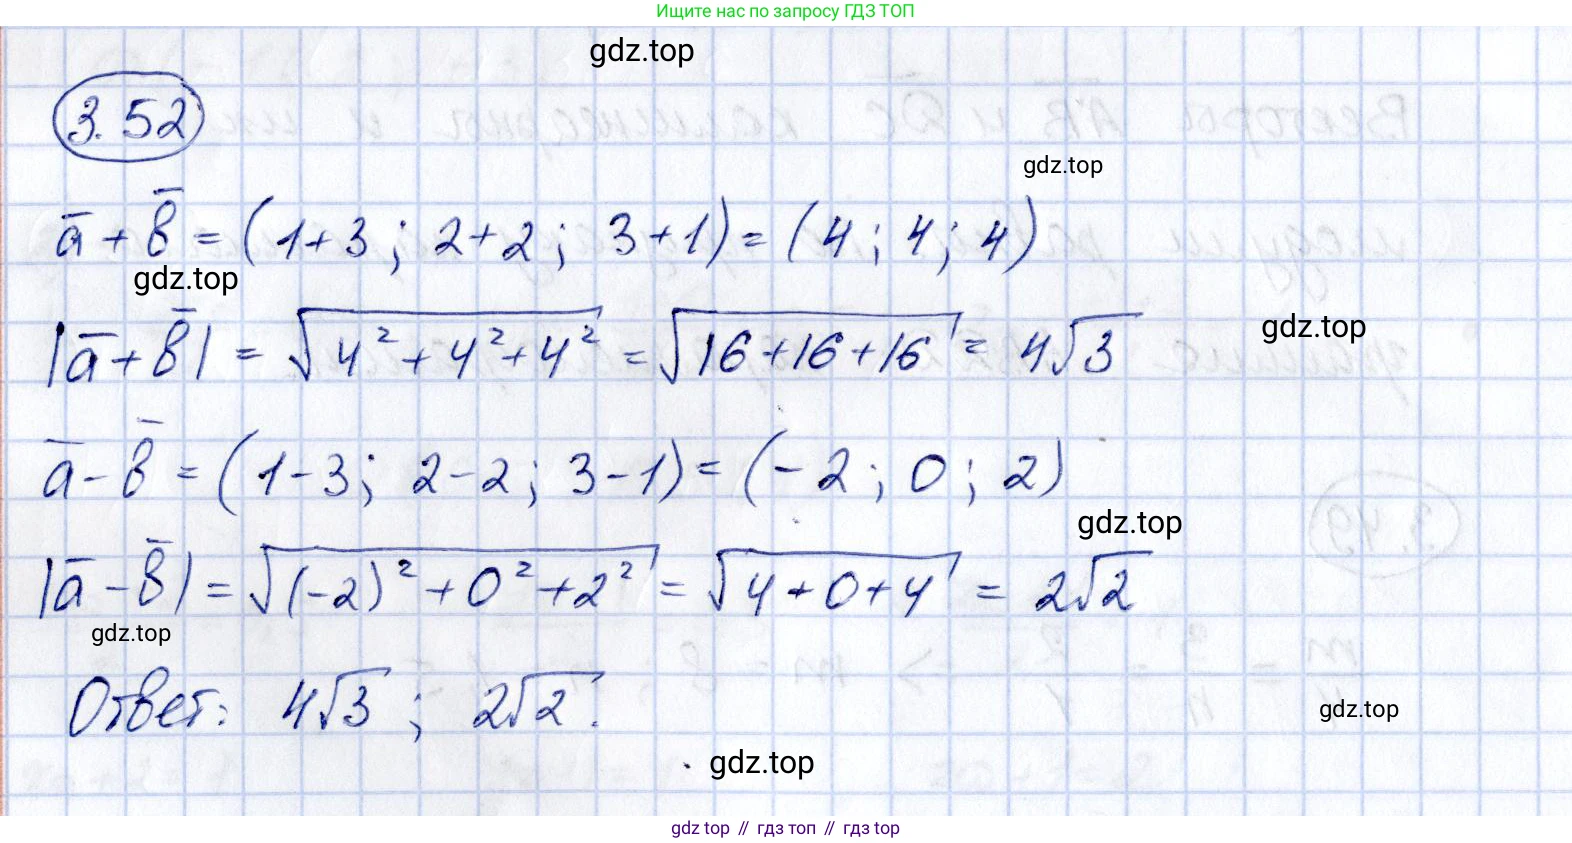 Ищите нас по запросу ГДЗ ТОП
gdz.top
3.52
gdz.top
a̅ + b̅ = (1+3; 2+2; 3+1) = (4; 4; 4)
gdz.top
|a̅ + b̅| = √(4² + 4² + 4²) = √(16+16+16) = 4√3
gdz.top
a̅ - b̅ = (1-3; 2-2; 3-1) = (-2; 0; 2)
gdz.top
|a̅ - b̅| = √((-2)² + 0² + 2²) = √(4+0+4) = 2√2
gdz.top
Ответ: 4√3; 2√2.
gdz.top
gdz.top
gdz top // гдз топ // гдз top